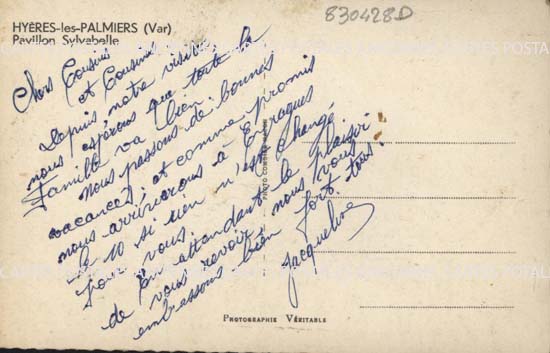 HYÈRES-les-PALMIERS (Var)
Pavillon Sylvabelle
830428D
Chers Cousins
et Cousine
Depuis notre visite
nous espérons que toute la
Famille va bien.
Nous passons de bonnes
vacances, et comme promis
nous arriverons à Eyragues
le 10 si rien n'est changé
pour vous.
En attendant le plaisir
de vous revoir, nous vous
embrassons bien fort tous.
Jacqueline
PHOTOGRAPHIE VÉRITABLE